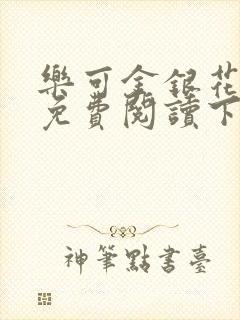 樂可金銀花
免費閱讀下
神筆點書臺